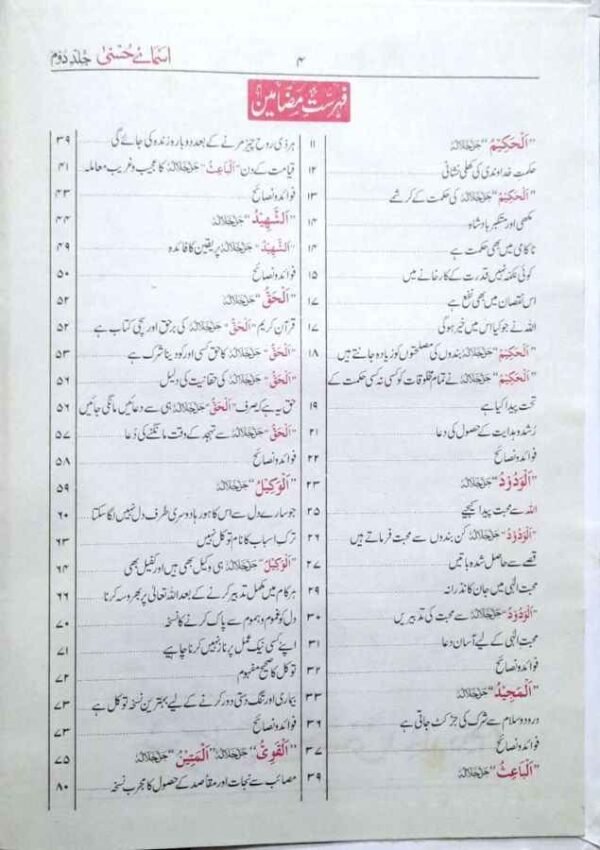 اسمائے حُسنیٰ جُلد دُوم
۴
فہرستِ مضامین
”اَلْحَكِيْمُ“ جل جلالہ ۱۱
حکمت خداوندی کی کھلی نشانی ۱۲
”اَلْحَكِيْمُ“ جل جلالہ کی حکمت کے کرشمے ۱۳
مکھی اور متکبر بادشاہ ۱۴
ناکامی میں بھی حکمت ہے ۱۴
کوئی نکما نہیں قدرت کے کارخانے میں ۱۵
اس نقصان میں بھی نفع ہے ۱۷
اللہ نے جو کیا اس میں خیر ہوگی ۱۷
”اَلْحَكِيْمُ“ جل جلالہ بندوں کی مصلحتوں کو زیادہ جانتے ہیں ۱۸
”اَلْحَكِيْمُ“ جل جلالہ نے تمام مخلوقات کو کسی نہ کسی حکمت کے
تحت پیدا کیا ہے ۱۹
رُشد و ہدایت کے حصول کی دعا ۲۱
فوائد و نصائح ۲۲
”اَلْوَدُوْدُ“ جل جلالہ ۲۳
اللہ سے محبت پیدا کیجیے ۲۵
”اَلْوَدُوْدُ“ جل جلالہ کن بندوں سے محبت فرماتے ہیں ۲۶
قصے سے حاصل شدہ باتیں ۲۷
محبت الٰہی میں جان کا نذرانہ ۲۹
”اَلْوَدُوْدُ“ جل جلالہ سے محبت کی تدبیریں ۳۰
محبت الٰہی کے لیے آسان دعا ۳۱
فوائد و نصائح ۳۲
”اَلْمَجِيْدُ“ جل جلالہ ۳۳
درود و سلام سے شرک کی جڑ کٹ جاتی ہے ۳۶
فوائد و نصائح ۳۷
”اَلْبَاعِثُ“ جل جلالہ ۳۹
ہر ذی روح چیز مرنے کے بعد دوبارہ زندہ کی جائے گی ۳۹
قیامت کے دن ”اَلْبَاعِثُ“ جل جلالہ کا عجیب و غریب معاملہ ۴۱
فوائد و نصائح ۴۳
”اَلشَّهِيْدُ“ جل جلالہ ۴۴
”اَلشَّهِيْدُ“ جل جلالہ پر یقین کا فائدہ ۴۹
فوائد و نصائح ۵۰
”اَلْحَقُّ“ جل جلالہ ۵۲
قرآن کریم ”اَلْحَقُّ“ جل جلالہ کی برحق اور سچی کتاب ہے ۵۲
”اَلْحَقُّ“ جل جلالہ کا حق کسی اور کو دینا شرک ہے ۵۳
”اَلْحَقُّ“ جل جلالہ کی حقانیت کی دلیل ۵۶
حق یہ ہے کہ صرف ”اَلْحَقُّ“ جل جلالہ ہی سے دعائیں مانگی جائیں ۵۶
”اَلْحَقُّ“ جل جلالہ سے تہجد کے وقت مانگنے کی دُعا ۵۷
فوائد و نصائح ۵۸
”اَلْوَكِيْلُ“ جل جلالہ ۵۹
جو سارے دل سے اس کا ہو رہا وہ دوسری طرف دل نہیں لگا سکتا ۶۰
ترک اسباب کا نام توکل نہیں ۶۳
”اَلْوَكِيْلُ“ جل جلالہ ہی وکیل بھی ہیں اور کفیل بھی ۶۴
ہر کام میں مکمل تدبیر کرنے کے بعد اللہ تعالیٰ پر بھروسہ کرنا ۶۶
دل کو غموم و ہموم سے پاک کرنے کا نسخہ ۷۰
اپنے کسی نیک عمل پر ناز نہیں کرنا چاہیے ۷۱
توکل کا صحیح مفہوم ۷۲
بیماری اور تنگ دستی دور کرنے کے لیے بہترین نسخہ توکل ہے ۷۳
فوائد و نصائح ۷۳
”اَلْقَوِيُّ“ جل جلالہ ”اَلْمَتِيْنُ“ جل جلالہ ۷۵
مصائب سے نجات اور مقاصد کے حصول کا مجرب نسخہ ۸۰